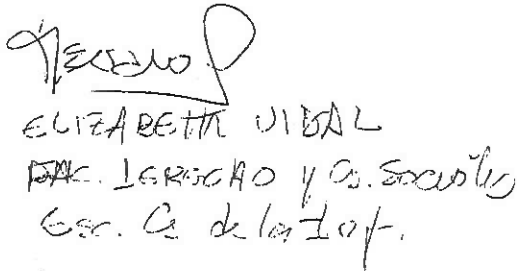 ELIZABETH VIDAL
FAC. DERECHO y Cs. Sociales
Esc. Cs de la Inf.